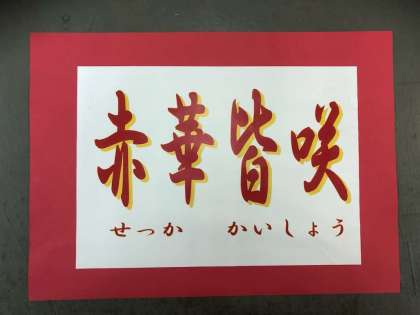 赤華皆咲
せっか かいしょう